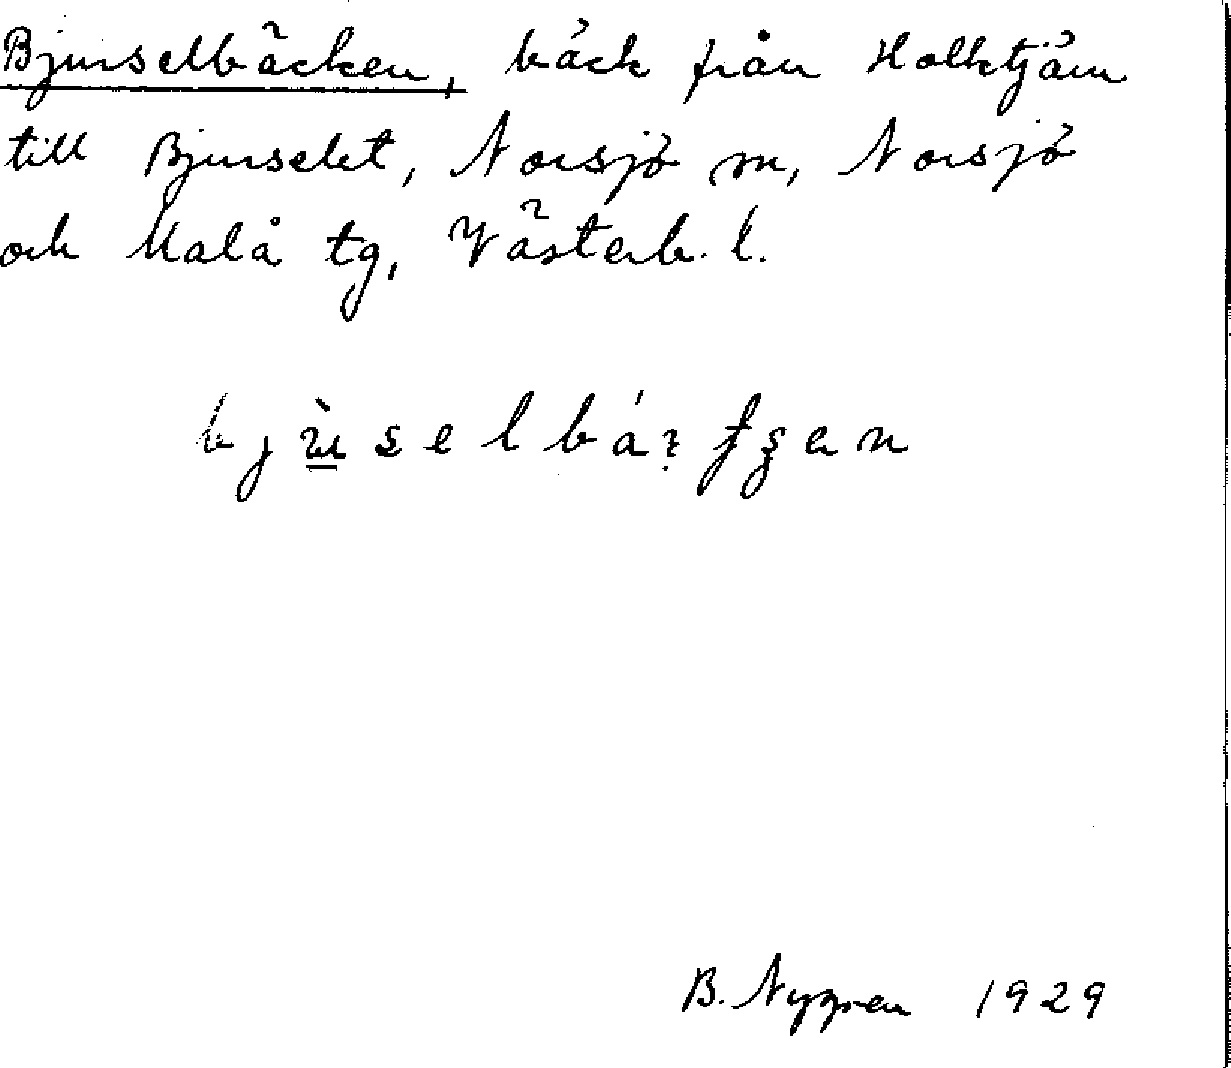 Bjurselbäcken, bäck från Holktjärn
till Bjurselet, Norsjö sn, Norsjö
och Malå tg, Västerb. l.
B. Nygren 1929